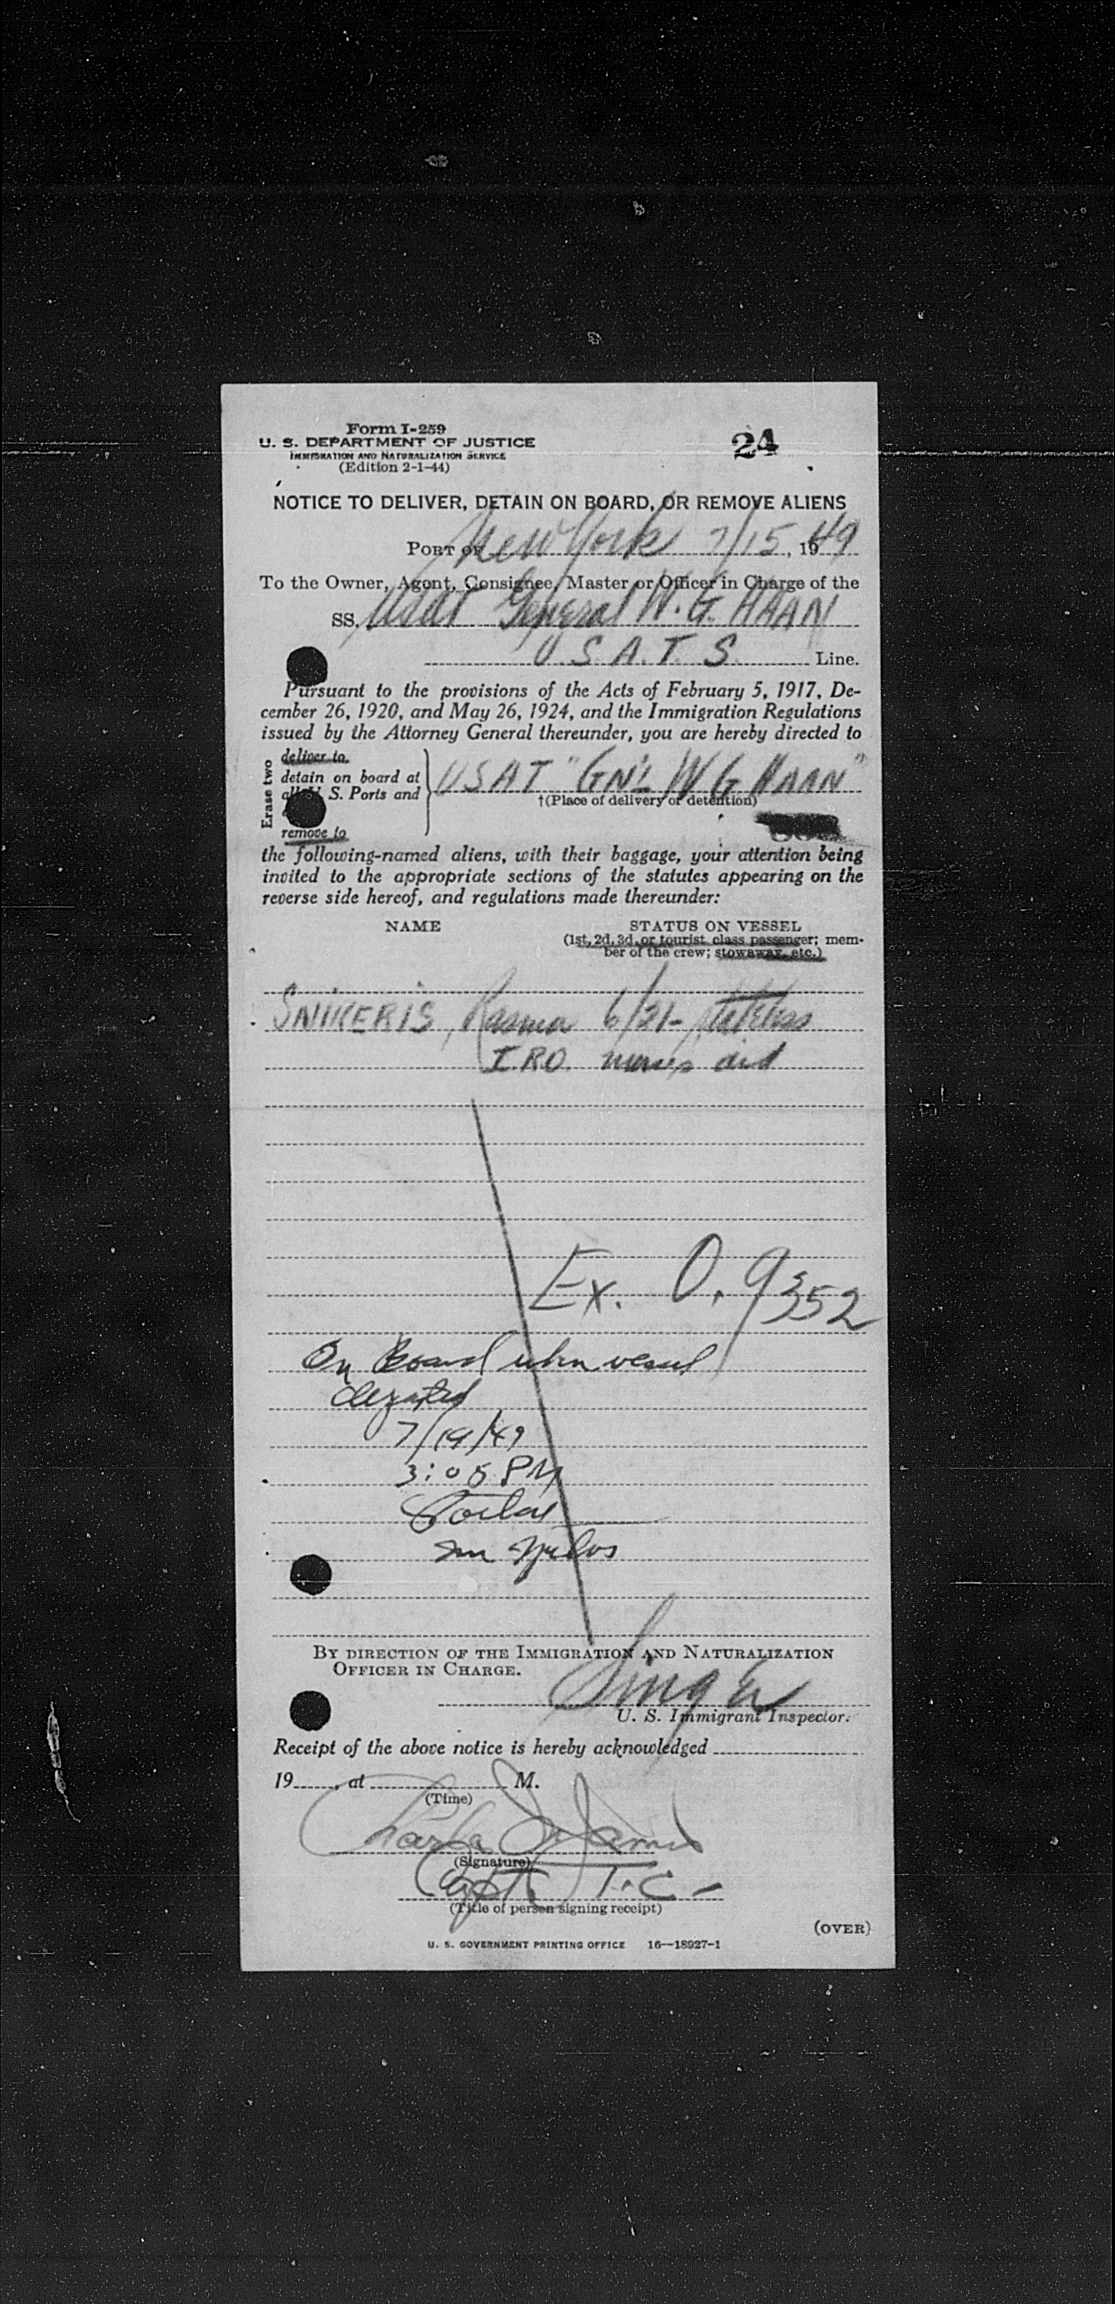 Form I-259
U. S. DEPARTMENT OF JUSTICE
IMMIGRATION AND NATURALIZATION SERVICE
(Edition 2-1-44)
24
NOTICE TO DELIVER, DETAIN ON BOARD, OR REMOVE ALIENS
PORT OF New York 7/15, 1949
To the Owner, Agent, Consignee, Master or Officer in Charge of the
SS. USAT General W. G. HAAN
U S. A. T. S. Line.
Pursuant to the provisions of the Acts of February 5, 1917, De-
cember 26, 1920, and May 26, 1924, and the Immigration Regulations
issued by the Attorney General thereunder, you are hereby directed to
Erase two
deliver to
detain on board at
S. Ports and
remove to
USAT "GN'L W G HAAN"
†(Place of delivery or detention)
the following-named aliens, with their baggage, your attention being
invited to the appropriate sections of the statutes appearing on the
reverse side hereof, and regulations made thereunder:
NAME
STATUS ON VESSEL
(1st, 2d, 3d, or tourist class passenger; mem-
ber of the crew; stowaway, etc.)
SNIKERIS, Rasma 6/21- stateless
I.R.O. nurses aid
Ex. 0,9352
On Board when vessel
departed
7/19/49
3:05 PM
BY DIRECTION OF THE IMMIGRATION AND NATURALIZATION
OFFICER IN CHARGE.
Singer
U. S. Immigrant Inspector.
Receipt of the above notice is hereby acknowledged
19 , at M.
(Time)
(Signature)
Capt. T.C-
(Title of person signing receipt)
(OVER)
U. S. GOVERNMENT PRINTING OFFICE 16—18927-1